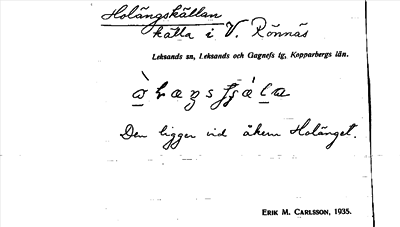 Holängskällan
källa i V. Rönnäs
Leksands sn, Leksands och Gagnefs tg, Kopparbergs län.
Den ligger vid åkern Holänget.
ERIK M. CARLSSON, 1935.